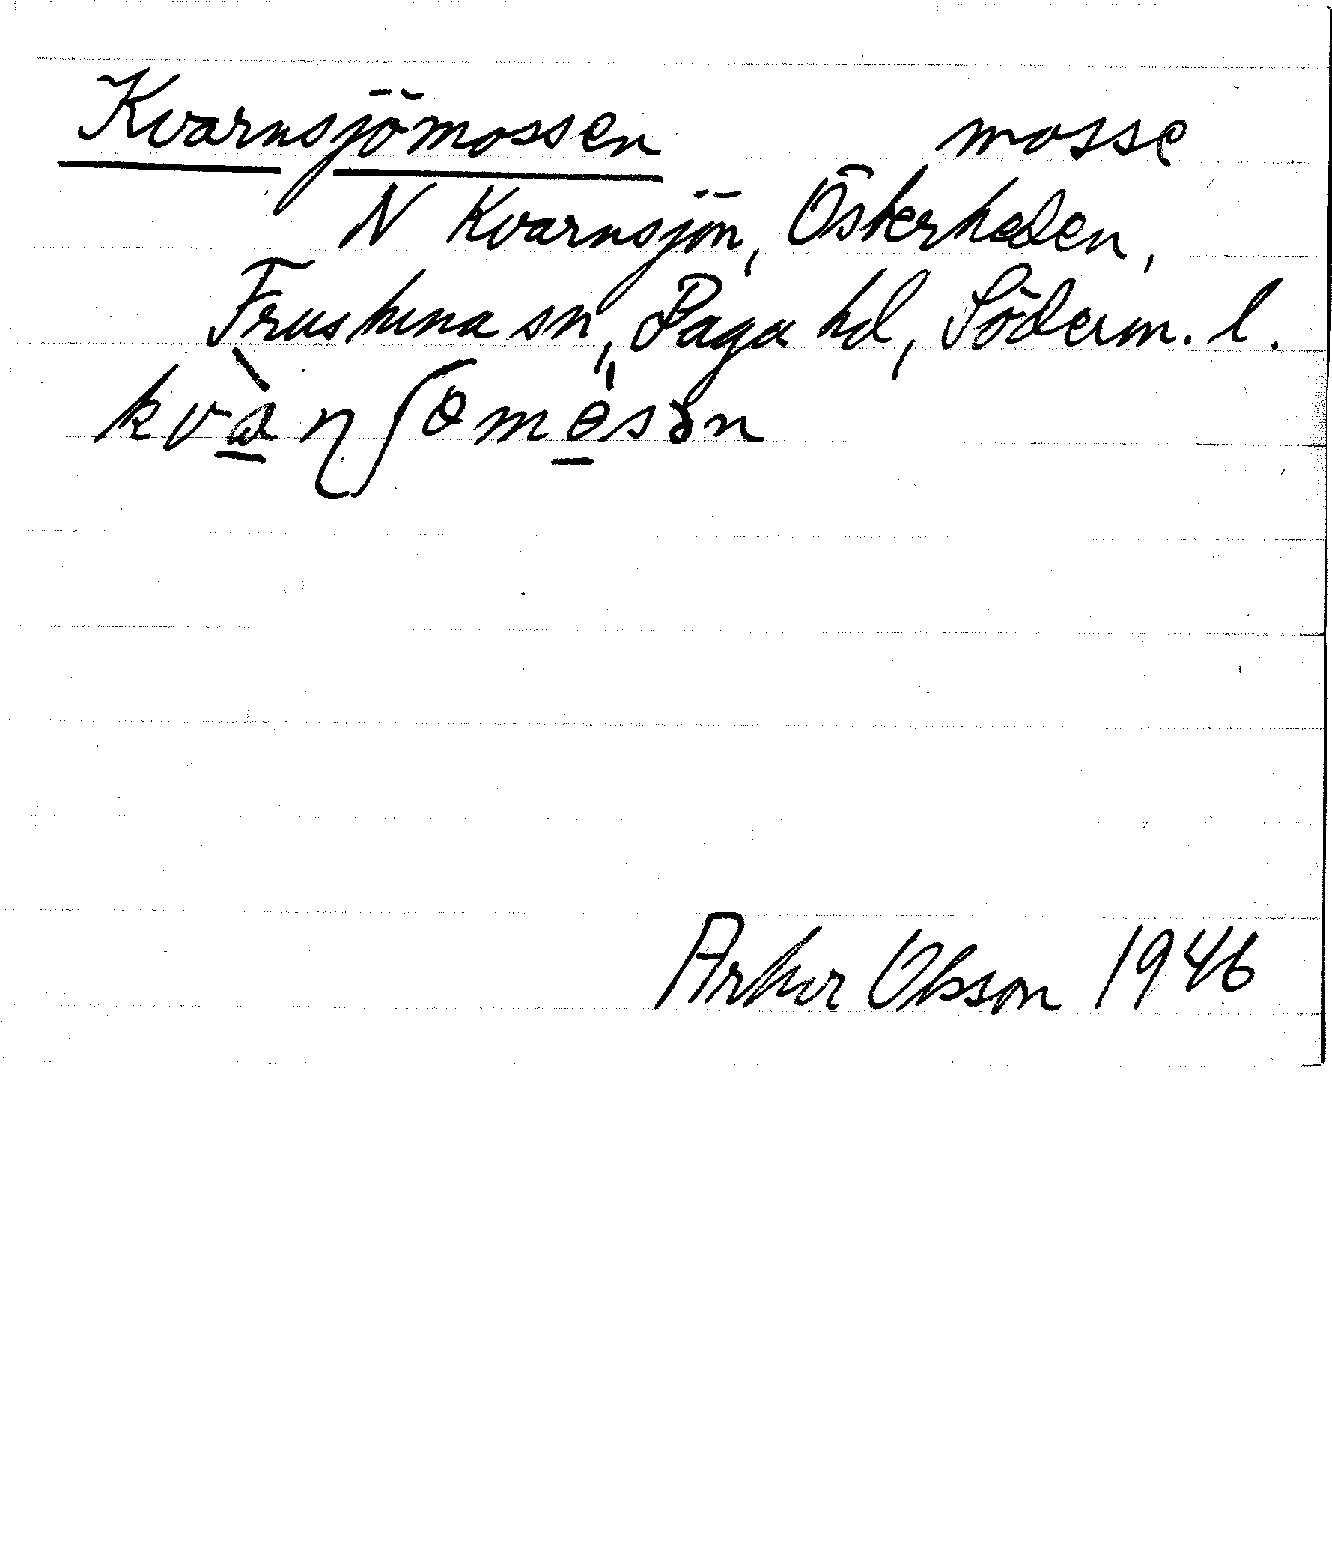 Kvarnsjömossen mosse
N Kvarnsjön, Österhalen,
Frustuna sn, Daga hd, Söderm. l.
Arthur Olsson 1946